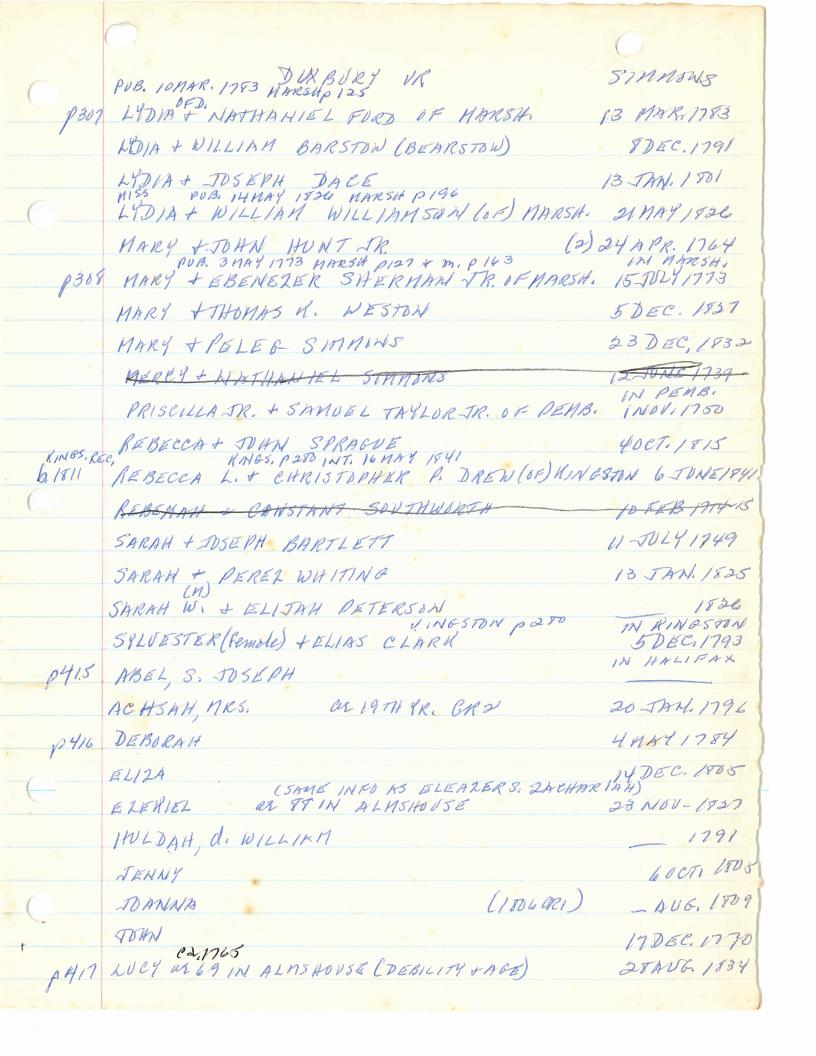 DUXBURY VR SIMMONS
PUB. 10 MAR. 1783 MARSH p 125
OFD.
p307 LYDIA & NATHANIEL FORD OF MARSH. 13 MAR. 1783
LYDIA + WILLIAM BARSTON (BEARSTOW) 8 DEC. 1791
LYDIA & JOSEPH DACE 13 JAN. 1801
MISS PUB. 14 MAY 1826 MARSH p 196
LYDIA + WILLIAM WILLIAMSON (OF) MARSH. 21 MAY 1826
MARY & JOHN HUNT JR. (2) 24 APR. 1764
PUB. 3 MAY 1773 MARSH p127 & m. p 163 IN MARSH.
p308 MARY & EBENEZER SHERMAN JR. OF MARSH. 15 JULY 1773
MARY & THOMAS H. WESTON 5 DEC. 1827
MARY & PELEG SIMMONS 23 DEC. 1832
MERCY & NATHANIEL SIMMONS 12 JUNE 1739
IN PEMB.
PRISCILLA JR. + SAMUEL TAYLOR JR. OF PEMB. 1 NOV. 1750
REBECCA & JOHN SPRAGUE 4 OCT. 1815
KINGS. REC. KINGS. p 280 INT. 16 MAY 1841
b. 1811 REBECCA L. & CHRISTOPHER P. DREW (OF) KINGSTON 6 JUNE 1841
REBEMAH & CONSTANT SOUTHWORTH 10 FEB 1714-15
SARAH & JOSEPH BARTLETT 11 JULY 1749
SARAH & PEREZ WHITING 13 JAN. 1825
(N)
SARAH W. & ELIJAH PETERSON __ 1826
KINGSTON p 280 IN KINGSTON
SYLVESTER (female) & ELIAS CLARK 5 DEC. 1793
IN HALIFAX
p415 ABEL, S. JOSEPH ____
ACHSAH, MRS. ae 19TH YR. GR2 20 JAN. 1796
p416 DEBORAH 4 MAY 1784
ELIZA 14 DEC. 1805
(SAME INFO AS ELEAZER S. ZACHARIAH)
EZEKIEL ae 88 IN ALMSHOUSE 23 NOV - 1827
HULDAH, d. WILLIAM __ 1791
JENNY 6 OCT. 1805
JOANNA (1806 GR1) _ AUG. 1809
JOHN 17 DEC. 1770
ca. 1765
p417 LUCY ae 69 IN ALMSHOUSE (DEBILITY & AGE) 28 AUG. 1834